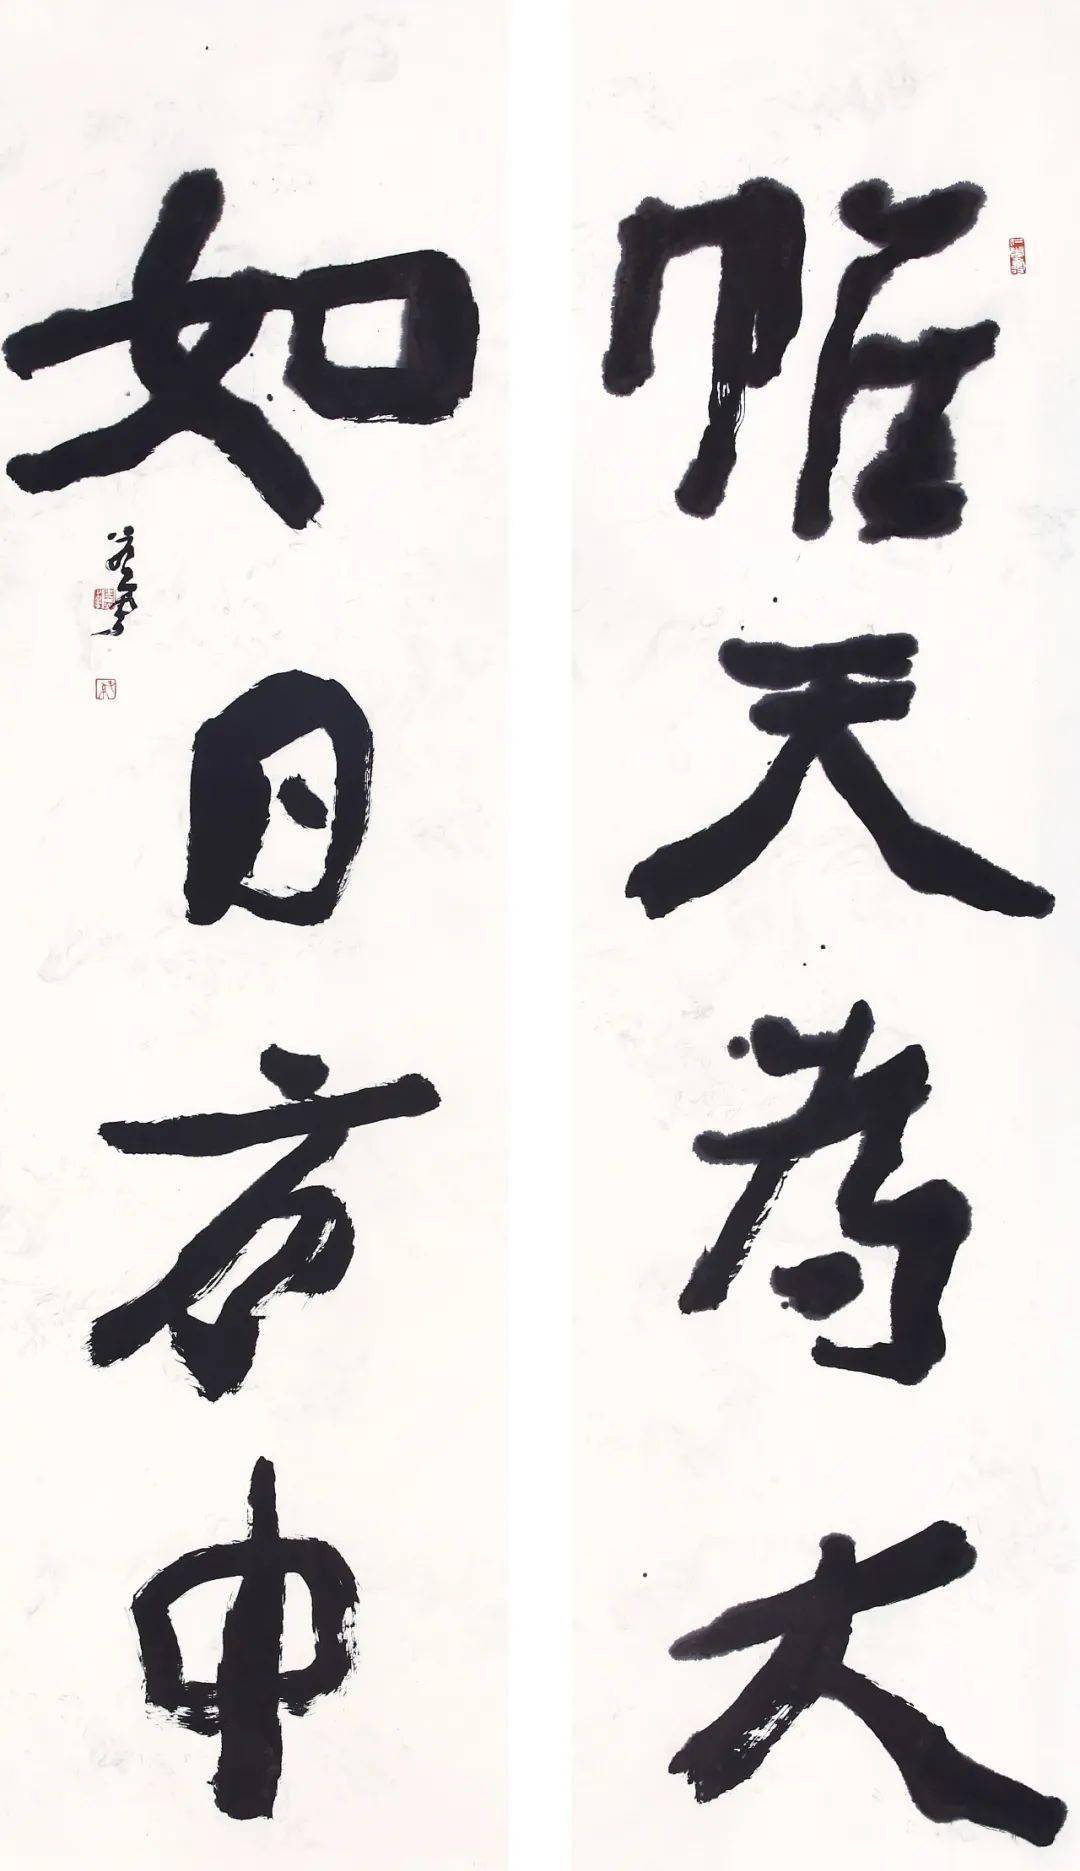 帷天為大
如日方中